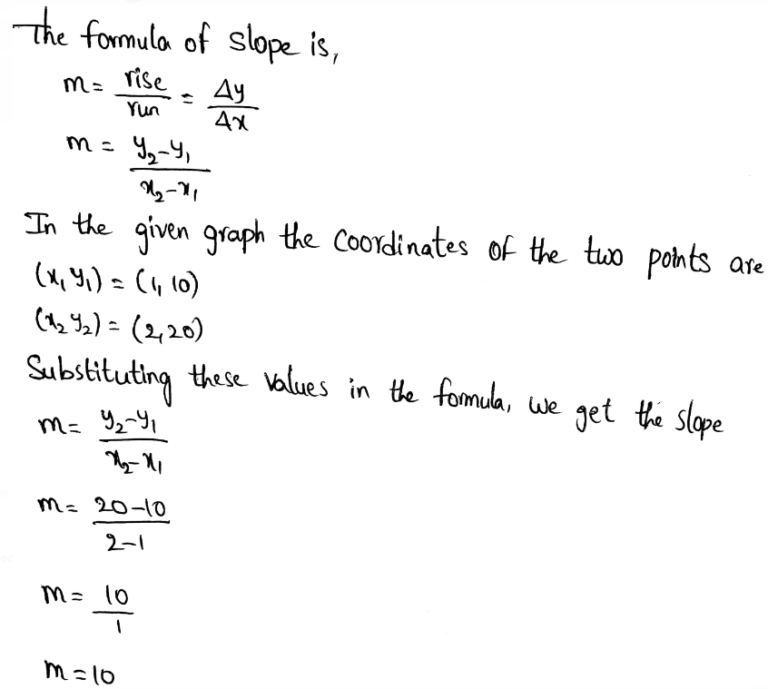 The formula of slope is,
m = rise/run = Δy/Δx
m = y₂-y₁/x₂-x₁
In the given graph the Coordinates of the two points are
(x₁ y₁) = (1, 10)
(x₂ y₂) = (2, 20)
Substituting these values in the formula, we get the slope
m = y₂-y₁/x₂-x₁
m = 20-10/2-1
m = 10/1
m = 10